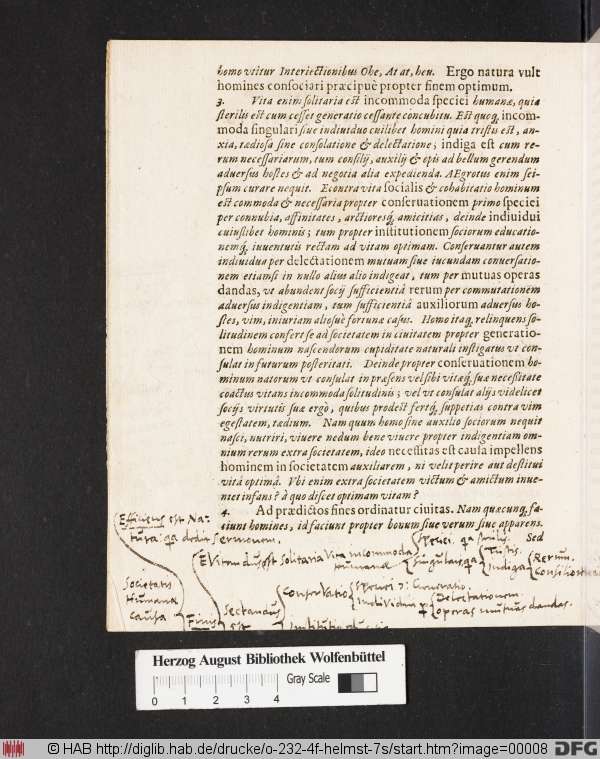 homo vtitur Interiectionibus Ohe, At at, heu. Ergo natura vult
homines consociari præcipuè propter finem optimum.
3. Vita enim solitaria est incommoda speciei humanæ, quia
sterilis est cum cesset generatio cessante concubitu. Est quoq; incom-
moda singulari siue indiuiduo cuilibet homini quia tristis est, an-
xia, tædiosa sine consolatione & delectatione; indiga est cum re-
rum necessariarum, tum consilij, auxilij & opis ad bellum gerendum
aduersus hostes & ad negotia alia expedienda. AEgrotus enim sei-
psum curare nequit. Econtra vita socialis & cohabitatio hominum
est commoda & necessaria propter conseruationem primo speciei
per connubia, affinitates, arctioresq; amicitias, deinde indiuidui
cuiuslibet hominis; tum propter institutionem sociorum educatio-
nemq; iuuentutis rectam ad vitam optimam. Conseruantur autem
indiuidua per delectationem mutuam siue iucundam conuersatio-
nem etiamsi in nullo alius alio indigeat, tum per mutuas operas
dandas, vt abundent socij sufficientiâ rerum per commutationem
aduersus indigentiam, tum sufficientiâ auxiliorum aduersus ho-
stes, vim, iniuriam aliosuè fortunæ casus. Homo itaq; relinquens so-
litudinem confert se ad societatem in ciuitatem propter generatio-
nem hominum nascendorum cupiditate naturali instigatus vt con-
sulat in futurum posteritati. Deinde propter conseruationem ho-
minum natorum vt consulat in præsens vel sibi vitæq; suæ necessitate
coactus vitans incommoda solitudinis; vel vt consulat alijs videlicet
socijs virtutis suæ ergò, quibus prodest fertq; suppetias contra vim
egestatem, tædium. Nam quum homo sine auxilio sociorum nequit
nasci, nutriri, viuere nedum bene viuere propter indigentiam om-
nium rerum extra societatem, ideo necessitas est causa impellens
hominem in societatem auxiliarem, ni velit perire aut destitui
vitâ optimâ. Vbi enim extra societatem victum & amictum inue-
niet infans? à quo discet optimam vitam?
4. Ad prædictos fines ordinatur ciuitas. Nam quæcunq; fa-
ciunt homines, id faciunt propter bonum siue verum siue apparens.
Sed
Efficiens est Na-
tura: qa dedit Sermonem.
Societatis
Humanæ
causa
Finis
Solitaria Vita incommoda
Humanæ
Speciei qa sterilis.
Singulari qa
Tristis.
Indiga
Rerum.
Consilio
Sectandus
est
Conservatio
Speciei
Individui
Delectationem.
operas mutuas dandas.
Herzog August Bibliothek Wolfenbüttel
Gray Scale
0 1 2 3 4
© HAB http://diglib.hab.de/drucke/o-232-4f-helmst-7s/start.htm?image=00008 DFG